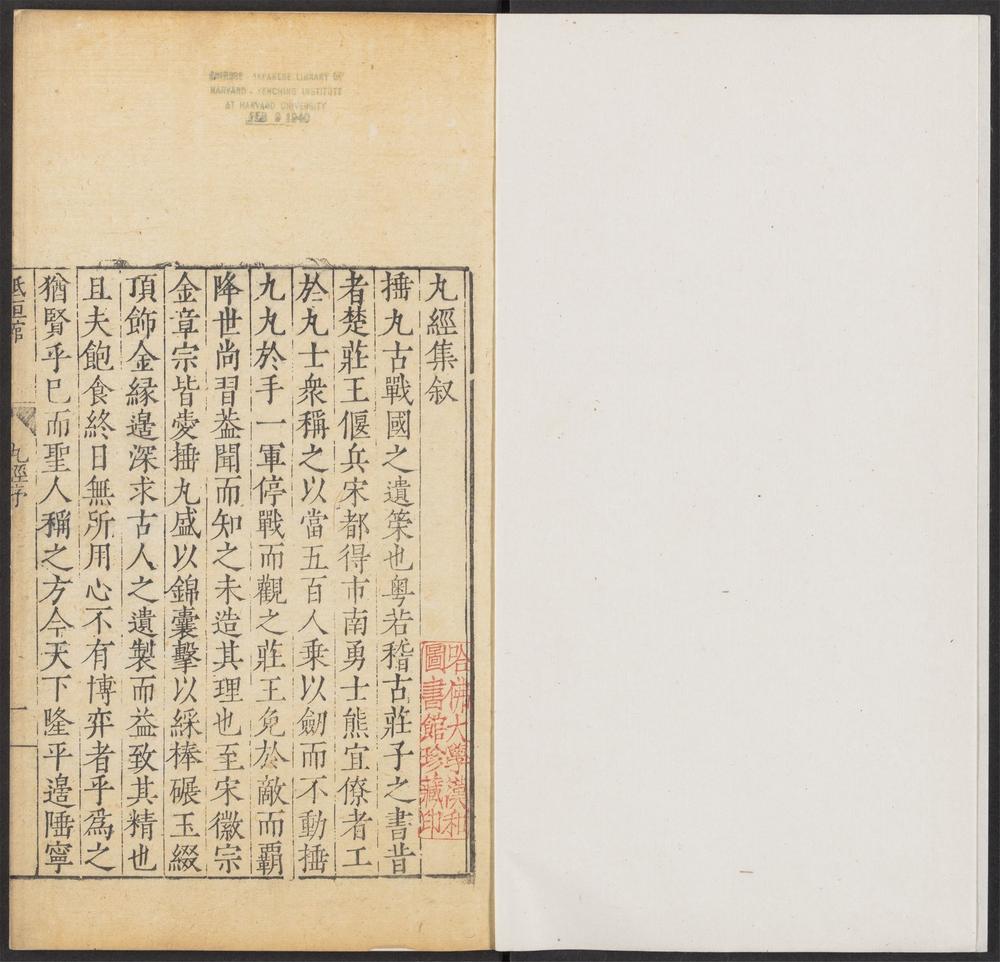 CHINESE - JAPANESE LIBRARY OF
HARVARD - YENCHING INSTITUTE
AT HARVARD UNIVERSITY
FEB 9 1940
丸經集叙
捶丸古戰國之遺策也粤若稽古莊子之書昔
者楚莊王偃兵宋都得市南勇士熊宜僚者工
於丸士衆稱之以當五百人乗以劒而不動捶
九丸於手一軍停戰而觀之莊王免於敵而霸
降世尚習葢聞而知之未造其理也至宋徽宗
金章宗皆愛捶丸盛以錦囊擊以綵棒碾玉綴
頂飾金縁邉深求古人之遺製而益致其精也
且夫飽食終日無所用心不有博弈者乎爲之
猶賢乎已而聖人稱之方今天下隆平邉陲寧
丸經序
一
哈佛大學漢和
圖書館珍藏印